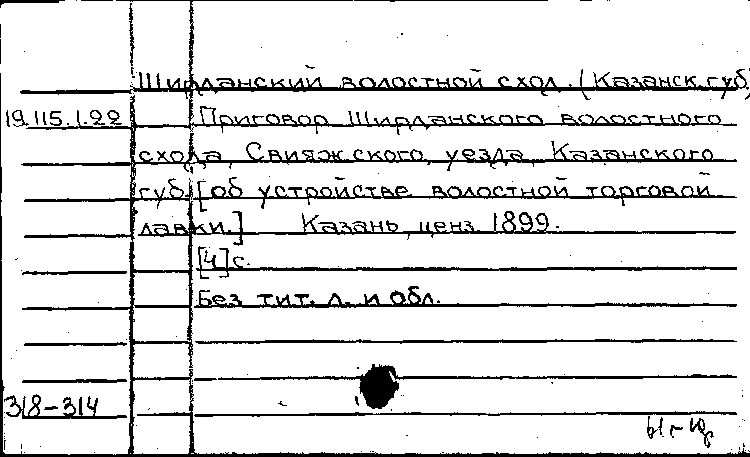 Ширданский волостной сход. (Казанск.губ)
19.115.1.22 Приговор Ширданского волостного
схода, Свияжского, уезда, Казанского
губ. [об устройстве волостной торговой
лавки.] Казань, ценз. 1899.
[4] с.
Без тит. л. и обл.
318-314